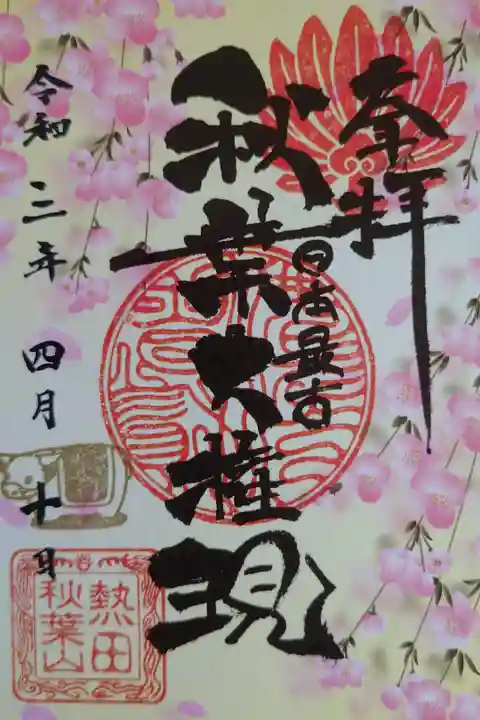 奉拝
日本最古
秋葉大権現
令和三年 四月 十日
熱田
秋葉山